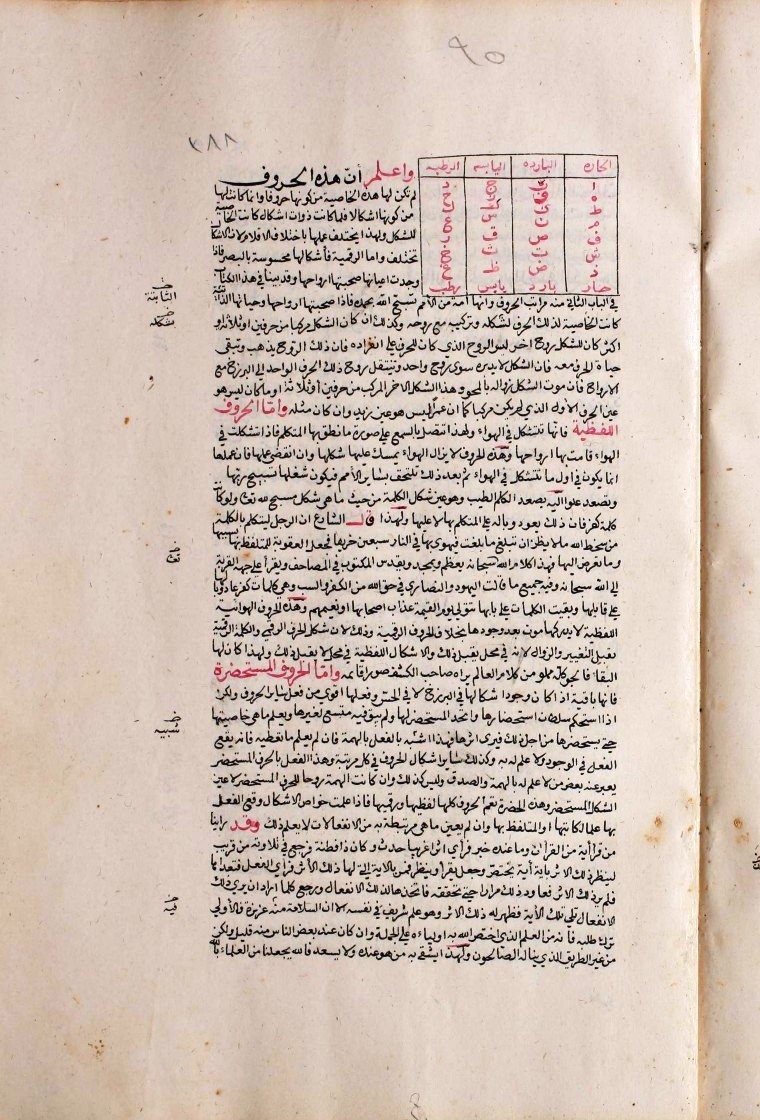 ٩٥
٣٨٨
الحاره الباردة اليابسة الرطبه
ا ب ج د
ه و ز ح
ط ى ك ل
م ن س ع
ف ص ق ر
ش ت ث خ
ذ ض ظ غ
حار بارد يابس رطب
واعلم أنّ هذه الحروف
لم تكن لها هذه الخاصية من كونها حروفا وانما كانت لها
من كونها اشكالا فلما كانت ذوات اشكال كانت الخاصية
للشكل ولهذا يختلف عملها باختلاف الاقلام لان الاشكال
تختلف واما الرقمية فأشكالها محسوسة بالبصر فاذا
وجدت اعيانها صحبتها ارواحها وقد بينا في هذا الكتاب
في الباب الثاني منه مراتب الحروف وانها أمة من الأمم تسبح الله بحمده فاذا صحبتها ارواحها وحياتها الذاتية
كانت الخاصية لذلك الحرف لشكله وتركيبه مع روحه وكذلك ان كان الشكل مركبا من حرفين او ثلاثة او
اكثر كان للشكل روح اخر ليس الروح الذي كان للحرف على انفراده فان ذلك الروح يذهب وتبقى
حياة الحرف معه فان الشكل لا يدبره سوى روح واحد وتنتقل روح ذلك الحرف الواحد الى البرزخ مع
الارواح فان موت الشكل زواله بالمحو وهذا الشكل الاخر المركب من حرفين أو ثلاثة او ما كان ليس هو
عين الحرف الاول الذي لم يكن مركبا كما ان عمرا ليس هو عين زيد وان كان مثله واما الحروف
اللفظية فانها تتشكل في الهواء ولهذا تتصل بالسمع على صورة ما نطق بها المتكلم فاذا تشكلت في
الهواء قامت بها ارواحها وهذه الحروف لا يزال الهواء يمسك عليها شكلها وان انقضى عملها فان عملها
انما يكون في اول ما تتشكل في الهواء ثم بعد ذلك تلتحق بسائر الأمم فيكون شغلها تسبيح ربها
وتصعد علوا اليه يصعد الكلم الطيب وهو عين شكل الكلمة من حيث ما هي شكل مسبح لله تعالى ولو كانت
كلمة كفر فان ذلك يعود وباله على المتكلم بها لا عليها ولهذا قال الشارع ان الرجل ليتكلم بالكلمة
من سخط الله ما لا يظن ان تبلغ ما بلغت فيهوى بها في النار سبعين خريفا فجعل العقوبة للمتلفظ بها بسببها
وما تعرض اليها فهذا كلام الله سبحانه يعظم ويمجد ويقدس المكتوب في المصاحف ويقرأ على جهة القربة
الى الله سبحانه وفيه جميع ما قالت اليهود والنصارى في حق الله من الكفر والسب وهي كلمات كفر عاد وبالها
على قايلها وبقيت الكلمات على بابها تتولى يوم القيمة عذاب اصحابها او نعيمهم وهذه الحروف الهوائية
اللفظية لا يدركها موت بعد وجودها بخلاف الحروف الرقمية وذلك لان شكل الحرف الرقمي والكلمة الرقمية
تقبل التغيير والزوال لانه في محل يقبل ذلك والاشكال اللفظية في محل لا يقبل ذلك ولهذا كان لها
البقا فالجو كله مملو من كلام العالم يراه صاحب الكشف صورا قائمه واما الحروف المستحضرة
فانها باقية اذ كان وجود اشكالها في البرزخ لا في الحس وفعلها اقوى من فعل سائر الحروف ولكن
اذا استحكم سلطان استحضارها واتحد المستحضر لها ولم يبق فيه متسع لغيرها ويعلم ما هي خاصيتها
حتى يستحضرها من اجل ذلك فيرى اثرها فهذا اشبه بالفعل بالهمة فان لم يعلم ما تعطيه فانه يقع
الفعل في الوجود ولا علم له به وكذلك سائر اشكال الحروف في كل مرتبة وهذا الفعل بالحرف المستحضر
يعبر عنه بعض من لا علم له بالهمة والصدق وليس كذلك وان كانت الهمة روحا للحرف المستحضر لا عين
الشكل المستحضر وهذه الحضرة تعم الحروف كلها لفظيها ورقميها فاذا علمت خواص الاشكال وقع الفعل
بها علما لكاتبها او المتلفظ بها وان لم يعين ما هي مرتبطة به من الانفعالات لا يعلم ذلك وقد راينا
من قرأ آية من القرآن وما عنده خبر فرأى اثرا غريبا حدث وكان ذا فطنة فرجع في تلاوته من قريب
لينظر ذلك الاثر باية آية يختص وجعل يقرأ وينظر فمر بالآية التي لها ذلك الاثر فرأى الفعل فتعداها
فلم ير ذلك الاثر فعاود ذلك مرارا حتى تحققه فاتخذها لذلك الانفعال ورجع كلما اراد ان يرى ذلك
الانفعال تلى تلك الآية فظهر له ذلك الاثر وهو علم شريف في نفسه الا ان السلامة منه عزيزة فالأولى
ترك طلبه فانه من العلم الذي اختص الله به اولياءه على الجملة وان كان عند بعض الناس منه قليل ولكن
من غير الطريق الذي يناله الصالحون ولهذا يشقى به من هو عنده ولا يسعد فالله يجعلنا من العلماء بالله
الثابتة
بشكله
تعالى
شبيه
فيه